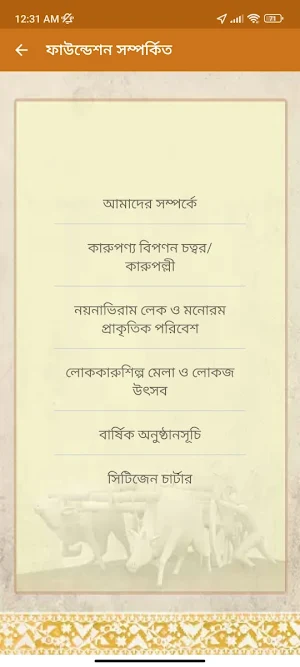 12:31 AM
73
ফাউন্ডেশন সম্পর্কিত
আমাদের সম্পর্কে
কারুপণ্য বিপণন চত্বর/
কারুপল্লী
নয়নাভিরাম লেক ও মনোরম
প্রাকৃতিক পরিবেশ
লোককারুশিল্প মেলা ও লোকজ
উৎসব
বার্ষিক অনুষ্ঠানসূচি
সিটিজেন চার্টার